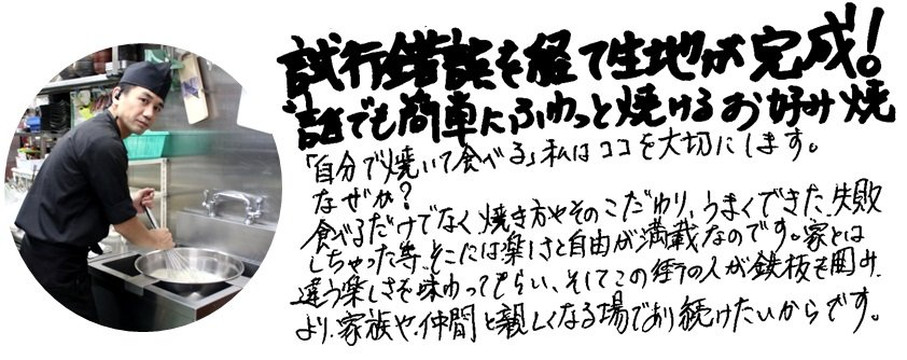 試行錯誤を経て生地が完成!
誰でも簡単にふわっと焼けるお好み焼
「自分で焼いて食べる」私はココを大切にします。
なぜか?
食べるだけでなく、焼き方やそのこだわり、うまくできた、失敗
しちゃった等、そこには楽しさと自由が満載なのです。家とは
違う楽しさを味わってもらい、そして多くの人が鉄板を囲み、
より、家族や、仲間と親しくなる場であり続けたいからです。